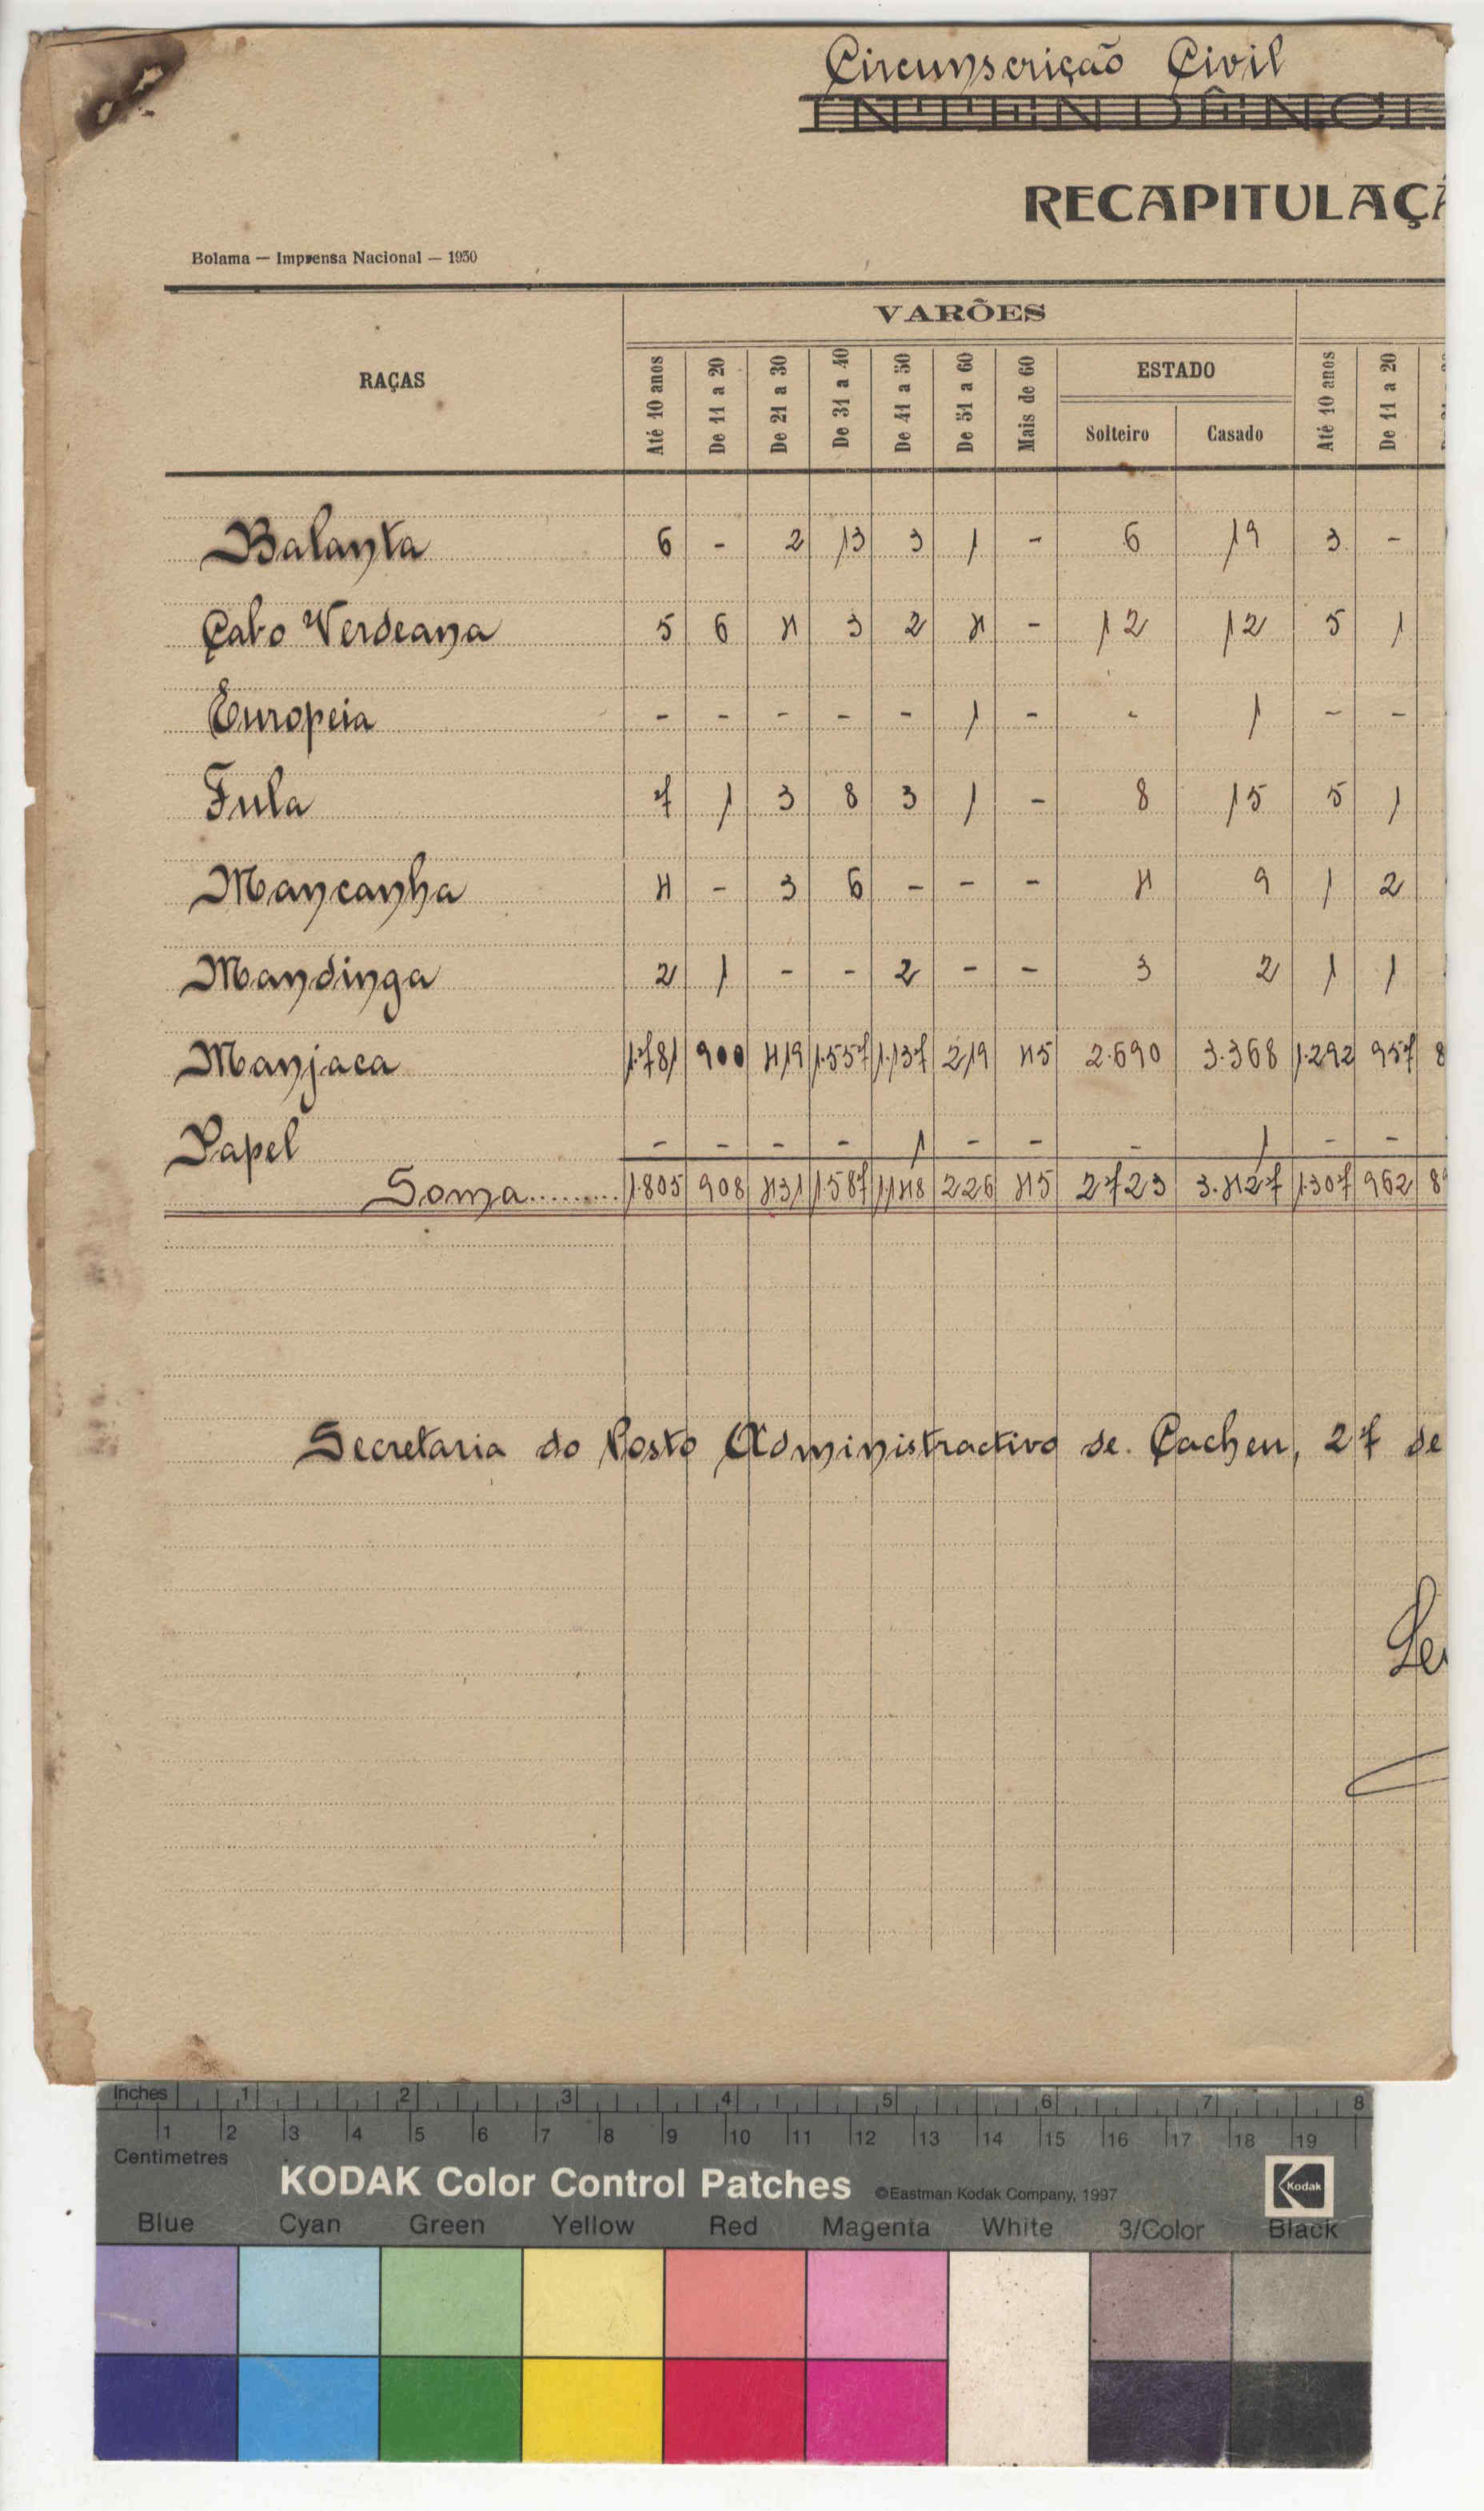 Circunscrição Civil
INTENDÊNCI
RECAPITULAÇÃ
Bolama — Imprensa Nacional — 1930
VARÕES
RAÇAS
Até 10 anos
De 11 a 20
De 21 a 30
De 31 a 40
De 41 a 50
De 51 a 60
Mais de 60
ESTADO
Solteiro Casado
Até 10 anos
De 11 a 20
Balanta 6 - 2 13 3 1 - 6 19 3 -
Cabo Verdeana 5 6 4 3 2 4 - 12 12 5 1
Europeia - - - - - 1 - - 1 - -
Fula 7 1 3 8 3 1 - 8 15 5 1
Mancanha 4 - 3 6 - - - 4 9 1 2
Mandinga 2 1 - - 2 - - 3 2 1 1
Manjaca 1.781 900 419 1.557 1.137 219 45 2.690 3.368 1.292 957 8
Papel - - - - 1 - - - 1 - -
Soma......... 1.805 908 431 1.587 1.148 226 45 2723 3.427 1.307 962 8
Secretaria do Posto Administractivo de Cacheu, 27 de
Inches 1 2 3 4 5 6 7 8
1 2 3 4 5 6 7 8 9 10 11 12 13 14 15 16 17 18 19
Centimetres
KODAK Color Control Patches ©Eastman Kodak Company, 1997 Kodak
Blue Cyan Green Yellow Red Magenta White 3/Color Black